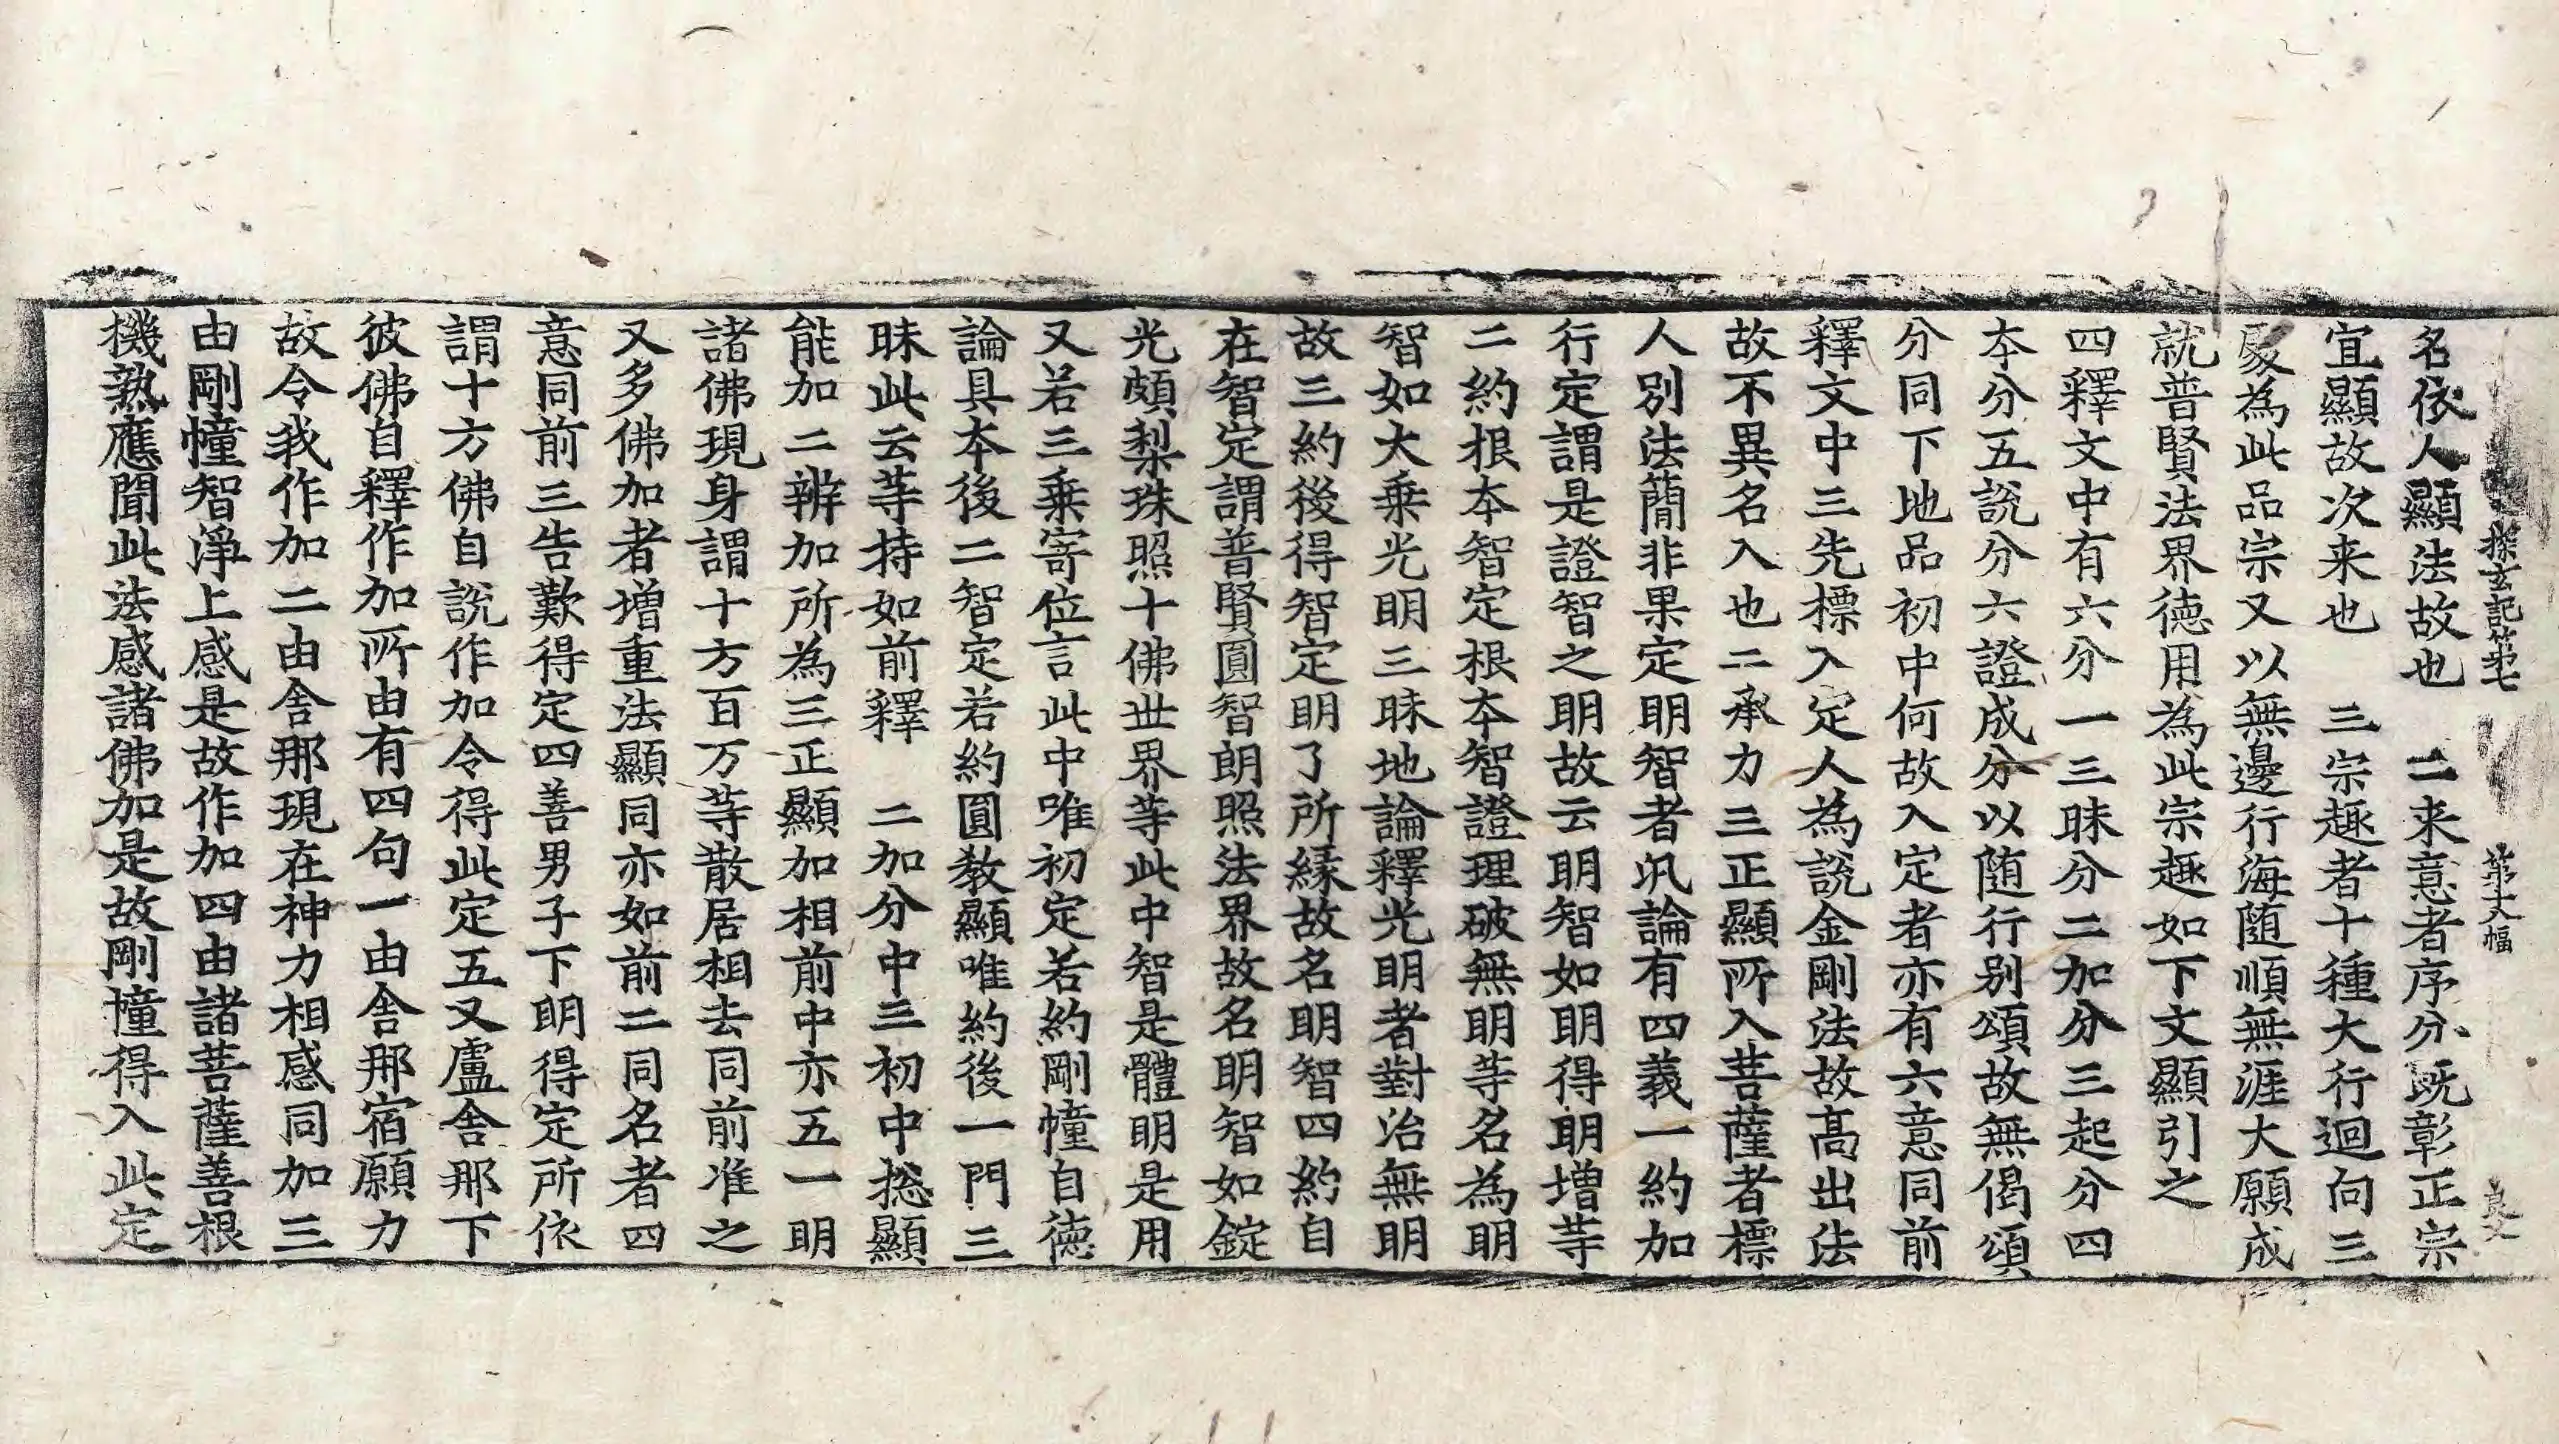 探玄記第七 第十六幅 良文
名依人顯法故也 二来意者序分既彰正宗
宜顯故次来也 三宗趣者十種大行迴向三
處為此品宗又以無邊行海随順無涯大願成
就普賢法界德用為此宗趣如下文顯引之
四釋文中有六分一三昧分二加分三起分四
本分五說分六證成分以随行别頌故無偈頌
分同下地品初中何故入定者亦有六意同前
釋文中三先標入定人為說金剛法故髙出法
故不異名入也二承力三正顯所入菩薩者標
人別法簡非果定明智者䢋論有四義一約加
行定謂是證智之明故云明智如明得明增等
二約根本智定根本智證理破無明等名為明
智如大乗光明三昧地論釋光明者對治無明
故三約後得智定明了所緣故名明智四約自
在智定謂普賢圓智朗照法界故名明智如錠
光頗梨珠照十佛世界等此中智是體明是用
又若三乗寄位言此中唯初定若約剛幢自德
論具本後二智定若約圓教顯唯約後一門三
昧此云等持如前釋 二加分中三初中揔顯
能加二辨加所為三正顯加相前中亦五一明
諸佛現身謂十方百万等散居相去同前准之
又多佛加者增重法顯同亦如前二同名者四
意同前三告歎得定四善男子下明得定所依
謂十方佛自說作加令得此定五又盧舍那下
彼佛自釋作加所由有四句一由舍那宿願力
故令我作加二由舍那現在神力相感同加三
由剛幢智淨上感是故作加四由諸菩薩善根
機熟應聞此法感諸佛加是故剛幢得入此定